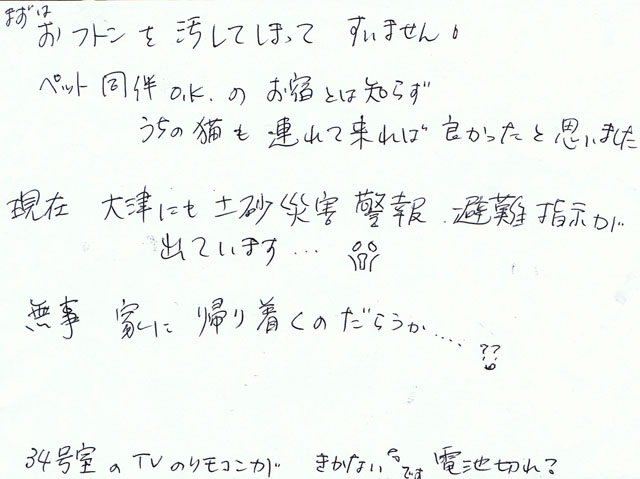 まずは
おフトンを汚してしまって すいません!
ペット同伴O.K.のお宿とは知らず
うちの猫も連れて来れば良かったと思いました
現在 大津にも土砂災害警報.避難指示が
出ています…
無事 家に帰り着くのだろうか……??
34号室のTVのリモコンが きかないです 電池切れ?